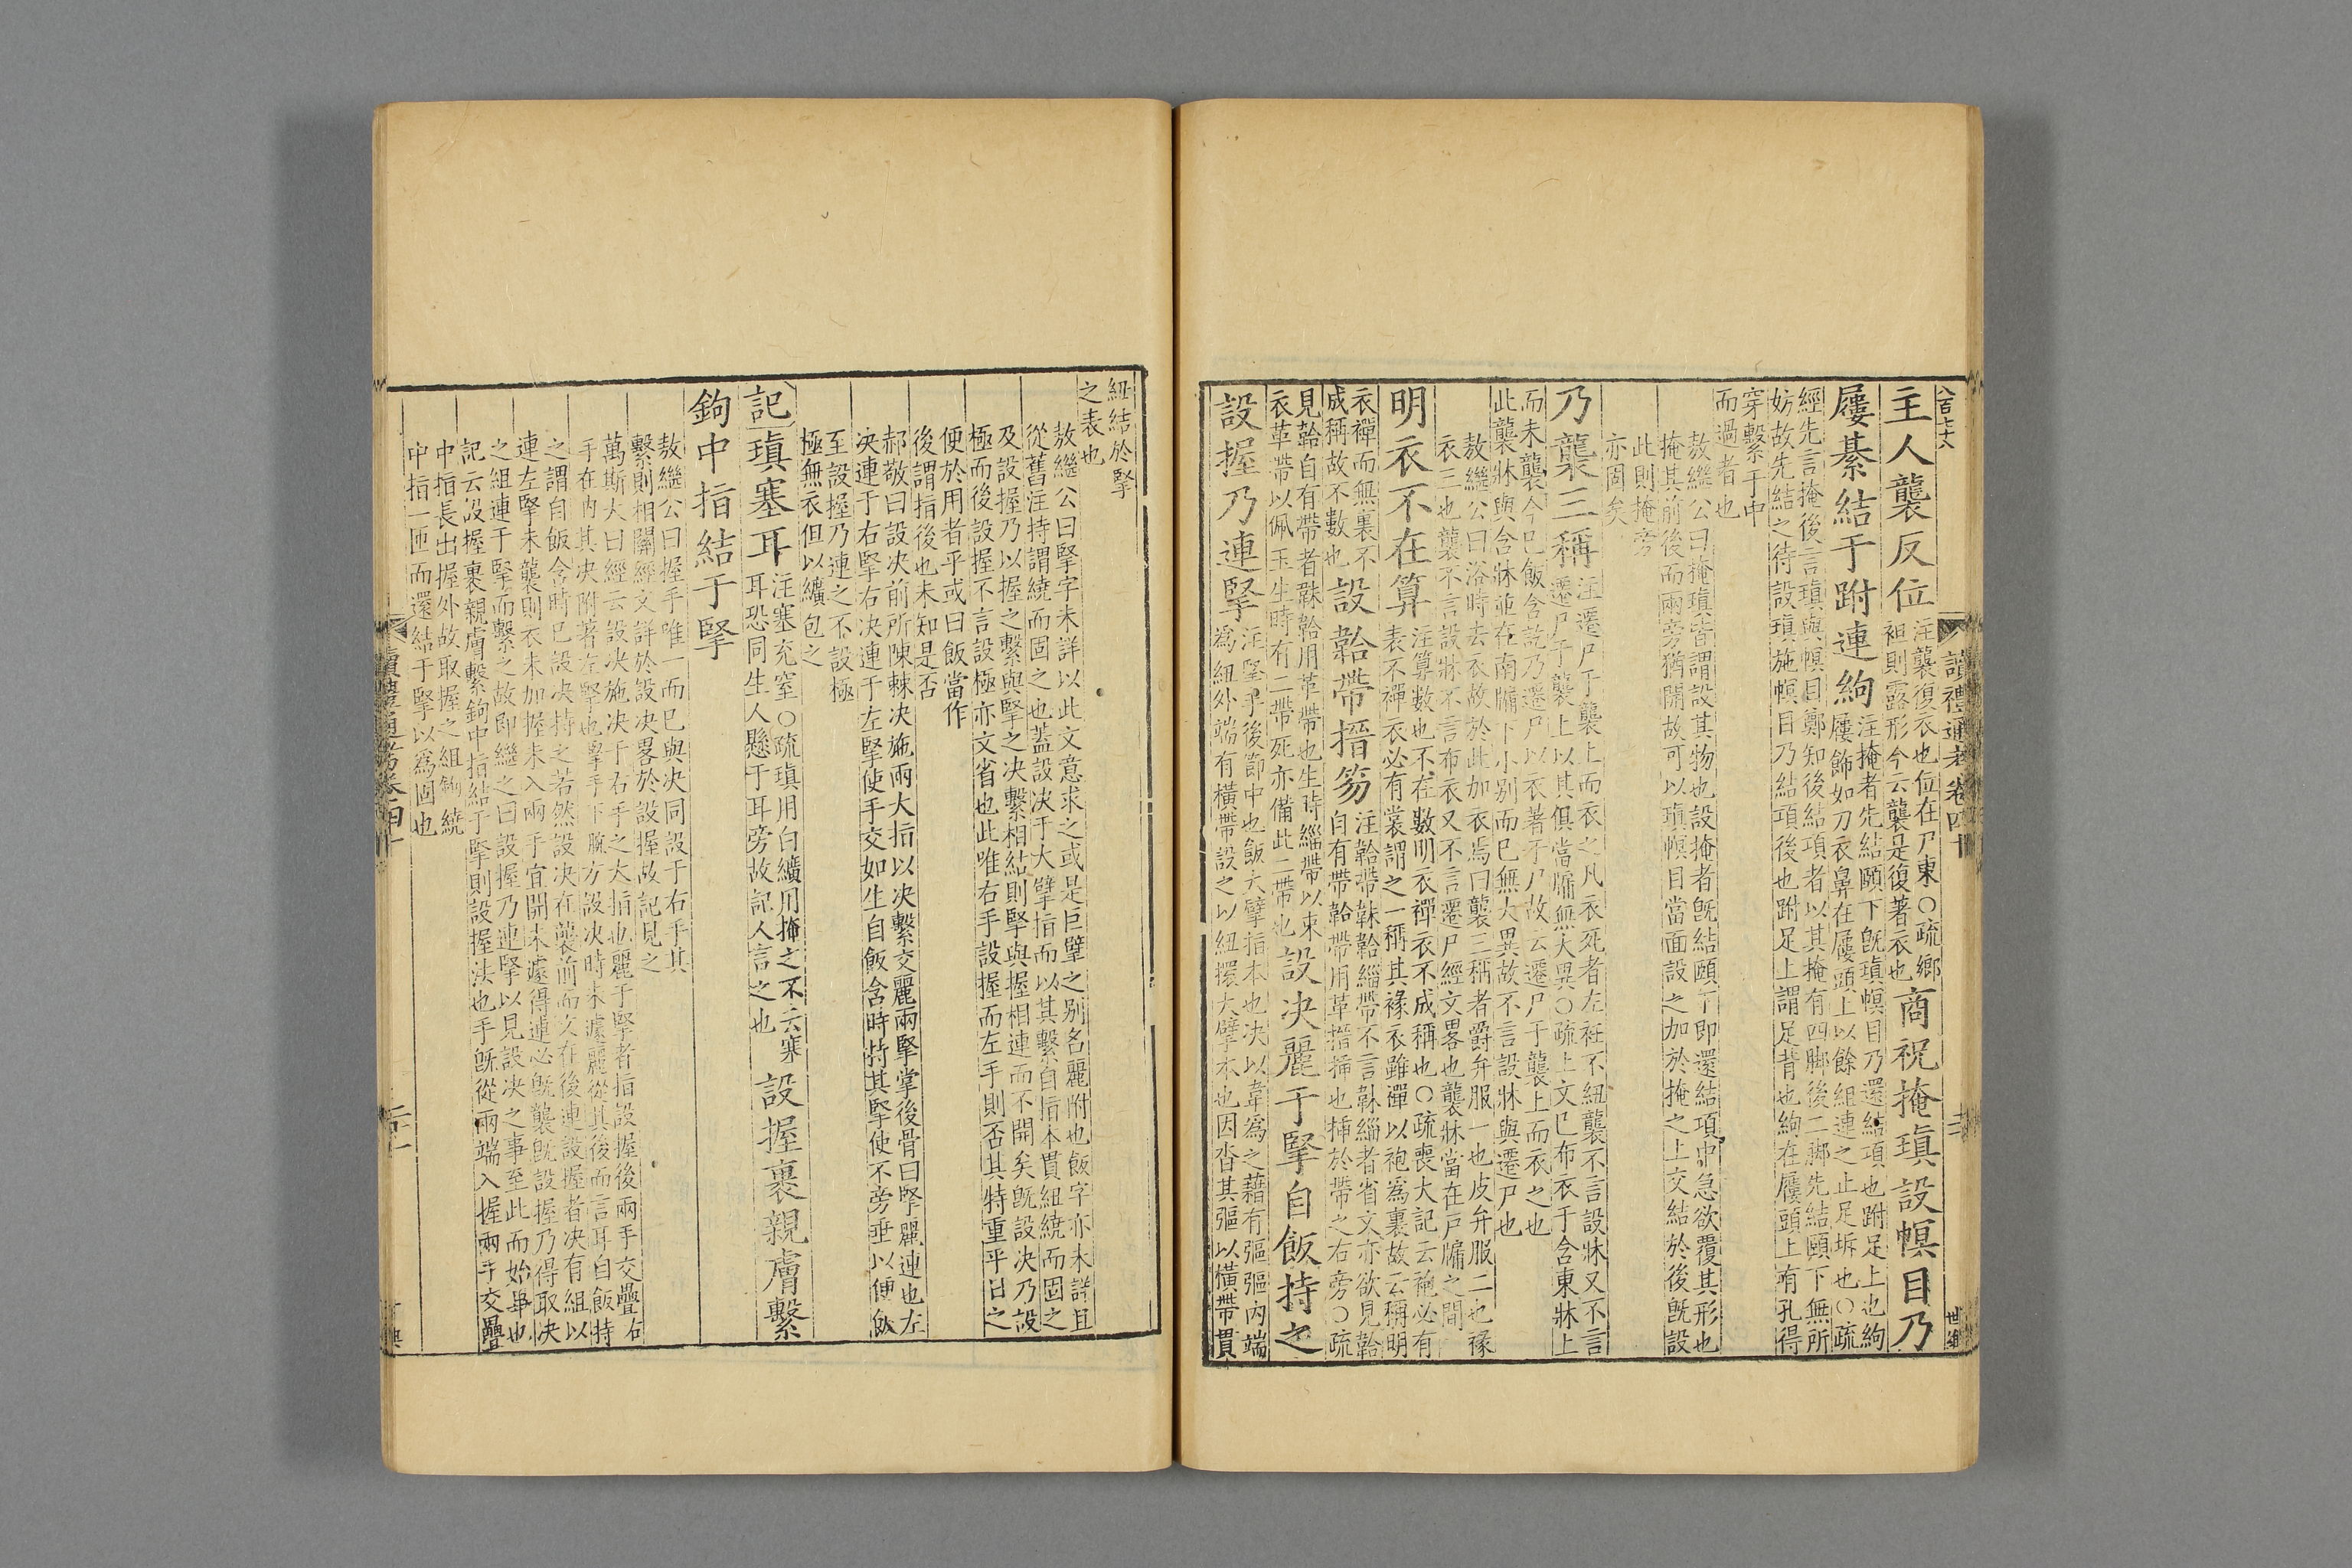 八百七六
讀禮通考卷四十
主人襲反位注襲復衣也位在尸東〇疏鄉
袒則露形今云襲是復著衣也商祝掩瑱設幎目乃
屨綦結于跗連絇注掩者先結頤下旣瑱幎目乃還結項也跗足上也絇
屨飾如刀衣鼻在屨頭上以餘組連之止足坼也〇疏
經先言掩後言瑱與幎目鄭知後結項者以其掩有四脚後二脚先結頤下無所
妨故先結之待設瑱施幎目乃結項後也跗足上謂足背也絇在屨頭上有孔得
穿繫于中
而過者也
敖繼公曰掩瑱皆謂設其物也設掩者旣結頤下即還結項中急欲覆其形也
掩其前後而兩旁猶開故可以瑱幎目當面設之加於掩之上交結於後旣設
此則掩旁
亦固矣
乃襲三稱注遷尸于襲上而衣之凡衣死者左衽不紐襲不言設牀又不言
遷尸于襲上以其俱當牖無大異〇疏上文已布衣于含東牀上
而未襲今已飯含訖乃遷尸以衣著于尸故云遷尸于襲上而衣之也
此襲牀與含牀並在南牖下小別而已無大異故不言設牀與遷尸也
敖繼公曰浴時去衣故於此加衣焉曰襲三稱者爵弁服一也皮弁服二也褖
衣三也襲不言設牀不言布衣又不言遷尸經文畧也襲牀當在戶牖之間
明衣不在算注算數也不在數明衣禪衣不成稱也〇疏喪大記云袍必有
表不禪衣必有裳謂之一稱其褖衣雖禪以袍爲裏故云稱明
衣禪而無裏不
成稱故不數也設韐帶搢笏注韐帶韎韐緇帶不言韎緇者省文亦欲見韐
自有帶韐帶用革搢插也插於帶之右旁〇疏
見韐自有帶者韎韐用革帶也生時緇帶以束
衣革帶以佩玉生時有二帶死亦備此二帶也設决麗于掔自飯持之
設握乃連掔注掔手後節中也飯大擘指本也决以韋爲之藉有彄彄內端
爲紐外端有橫帶設之以紐擐大擘本也因沓其彄以橫帶貫
紐結於掔
之表也
敖繼公曰掔字未詳以此文意求之或是巨擘之別名麗附也飯字亦未詳且
從舊注持謂繞而固之也葢設决于大擘指而以其繫自指本貫紐繞而固之
及設握乃以握之繫與掔之决繫相結則掔與握相連而不開矣旣設决乃設
極而後設握不言設極亦文省也此唯右手設握而左手則否其特重平日之
便於用者乎或曰飯當作
後謂指後也未知是否
郝敬曰設决前所陳棘决施兩大指以决繫交麗兩掔掌後骨曰掔麗連也左
决連于右掔右决連于左掔使手交如生自飯含時持其掔使不旁垂以便飯
至設握乃連之不設極
極無衣但以纊包之
記瑱塞耳注塞充窒〇疏瑱用白纊用掩之不云塞
耳恐同生人懸于耳旁故記人言之也設握裹親膚繫
鉤中指結于掔
敖繼公曰握手唯一而已與决同設于右手其
繫則相關經文詳於設决畧於設握故記見之
萬斯大曰經云設决施决于右手之大指也麗于掔者指設握後兩手交疊右
手在內其决附著左掔也掔手下腕方設决時未遽麗從其後而言耳自飯持
之謂自飯含時已設决持之若然設决在襲前而文在後連設握者决有組以
連左掔未襲則衣未加握未入兩手宜開未遽得連必旣襲旣設握乃得取决
之組連于掔而繫之故即繼之曰設握乃連掔以見設决之事至此而始畢也
記云設握裹親膚繫鉤中指結于掔則設握法也手旣從兩端入握兩手交疊
中指長出握外故取握之組鉤繞
中指一匝而還結于掔以爲固也
讀禮通考卷四十